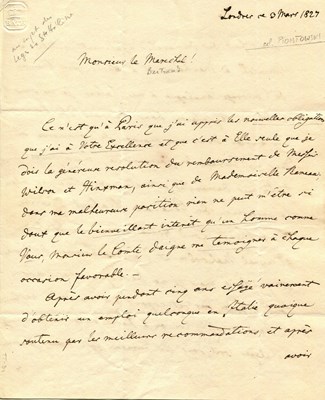 Londres ce 3 Mars 1827
au sujet du
legs de Ste Hélène
Monsieur le Marechal!
Bertrand
Ce n'est qu'à Paris que j'ai appris les nouvelles obligations
que j'ai à Votre Excellence et que c'est à Elle seule que je
dois la généreuse resolution du remboursement de Messrs
Wilson et Hinxman, ainsi que de Mademoiselle
dans ma malheureuse position rien ne peut m'être si
doux que le bienveillant interêt qu'un homme comme
Vous, Monsieur le Comte daigne me temoigner à chaque
occasion favorable. —
Après avoir pendant cinq ans essayé vainement
d'obtenir un emploi quelconque en Italie quoique
soutenu par les meilleures recommandations, et après
avoir